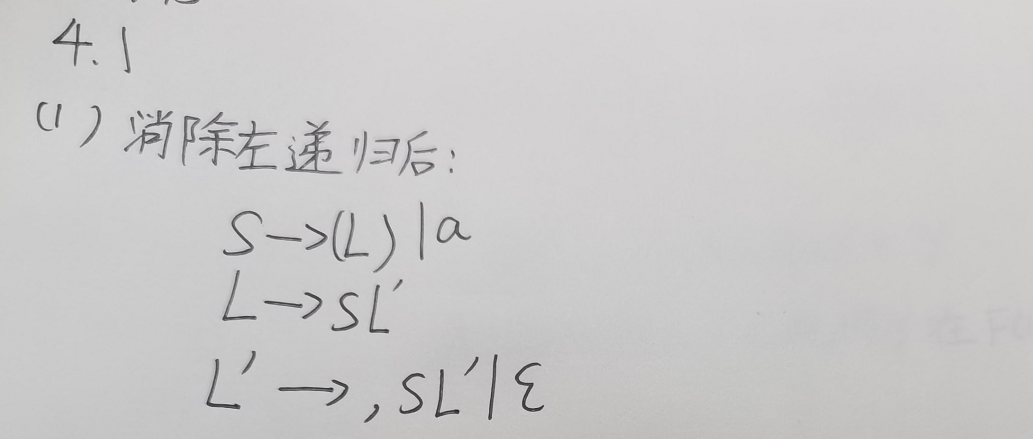 4.1
(1)消除左递归后:
S→(L)|a
L→SL′
L′→,SL′|ε